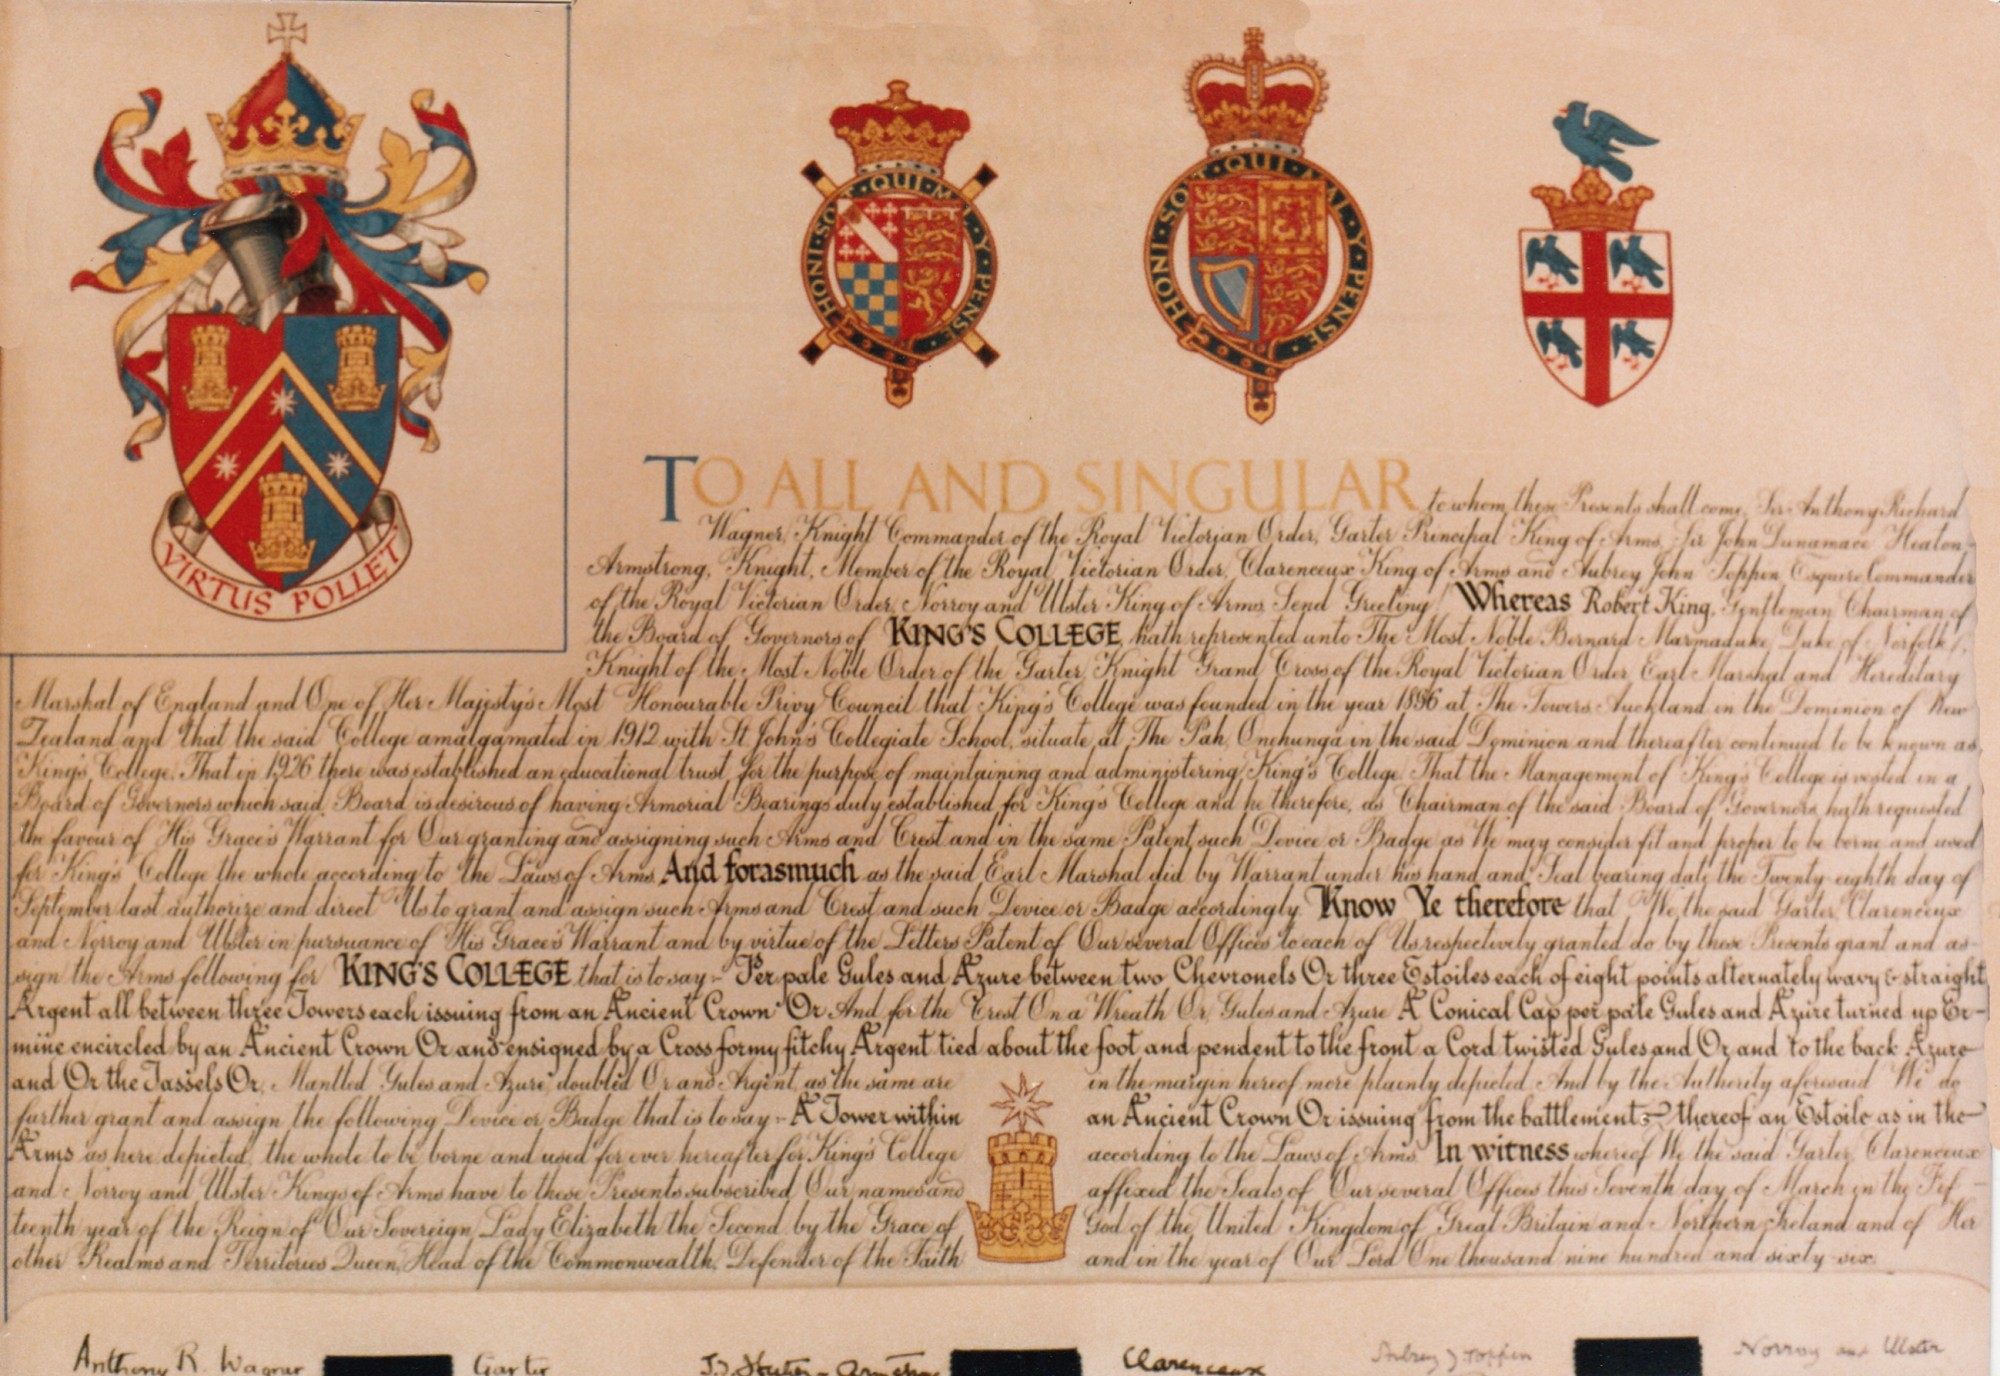 VIRTUS POLLET
HONI · SOIT · QUI · MAL · Y · PENSE
HONI · SOIT · QUI · MAL · Y · PENSE
TO ALL AND SINGULAR to whom these Presents shall come, Sir Anthony Richard
Wagner, Knight Commander of the Royal Victorian Order, Garter Principal King of Arms, Sir John Dunamace Heaton-
Armstrong, Knight, Member of the Royal Victorian Order, Clarenceux King of Arms and Aubrey John Toppin, Esquire Commander
of the Royal Victorian Order, Norroy and Ulster King of Arms, Send Greeting Whereas Robert King, Gentleman Chairman of
the Board of Governors of KING'S COLLEGE, hath represented unto The Most Noble Bernard Marmaduke, Duke of Norfolk,
Knight of the Most Noble Order of the Garter, Knight Grand Cross of the Royal Victorian Order, Earl Marshal and Hereditary
Marshal of England and One of Her Majesty's Most Honourable Privy Council that King's College was founded in the year 1896 at The Towers Auckland in the Dominion of New
Zealand and that the said College amalgamated in 1912 with St John's Collegiate School, situate at The Pah, Onehunga in the said Dominion and thereafter continued to be known as
King's College. That in 1926 there was established an educational trust, for the purpose of maintaining and administering King's College. That the Management of King's College is vested in a
Board of Governors which said Board is desirous of having Armorial Bearings duly established for King's College and he therefore, as Chairman of the said Board of Governors, hath requested
the favour of His Grace's Warrant for Our granting and assigning such Arms and Crest and in the same Patent such Device or Badge as We may consider fit and proper to be borne and used
for King's College the whole according to the Laws of Arms And forasmuch as the said Earl Marshal did by Warrant under his hand and Seal bearing date the Twenty-eighth day of
September last authorize and direct Us to grant and assign such Arms and Crest and such Device or Badge accordingly Know Ye therefore that We the said Garter, Clarenceux
and Norroy and Ulster in pursuance of His Grace's Warrant and by virtue of the Letters Patent of Our several Offices to each of Us respectively granted do by these Presents grant and as-
sign the Arms following for KING'S COLLEGE that is to say:- Per pale Gules and Azure between two Chevronels Or three Estoiles each of eight points alternately wavy & straight
Argent all between three Towers each issuing from an Ancient Crown Or And for the Crest On a Wreath Or, Gules and Azure A Conical Cap per pale Gules and Azure turned up Er-
mine encircled by an Ancient Crown Or and ensigned by a Cross formy fitchy Argent tied about the foot and pendent to the front a Cord twisted Gules and Or and to the back Azure
and Or the Tassels Or, Mantled Gules and Azure, doubled Or and Argent, as the same are in the margin hereof more plainly depicted And by the Authority aforesaid We do
further grant and assign the following Device or Badge that is to say:- A Tower within an Ancient Crown Or issuing from the battlements thereof an Estoile as in the
Arms as here depicted, the whole to be borne and used for ever hereafter for King's College according to the Laws of Arms In witness whereof We the said Garter, Clarenceux
and Norroy and Ulster Kings of Arms have to these Presents subscribed Our names and affixed the Seals of Our several Offices this Seventh day of March in the Fif-
teenth year of the Reign of Our Sovereign Lady Elizabeth the Second by the Grace of God of the United Kingdom of Great Britain and Northern Ireland and of Her
other Realms and Territories Queen, Head of the Commonwealth, Defender of the Faith and in the year of Our Lord One thousand nine hundred and sixty-six.
Anthony R. Wagner Garter J. D. Heaton-Armstrong Clarenceux Aubrey J Toppin Norroy and Ulster